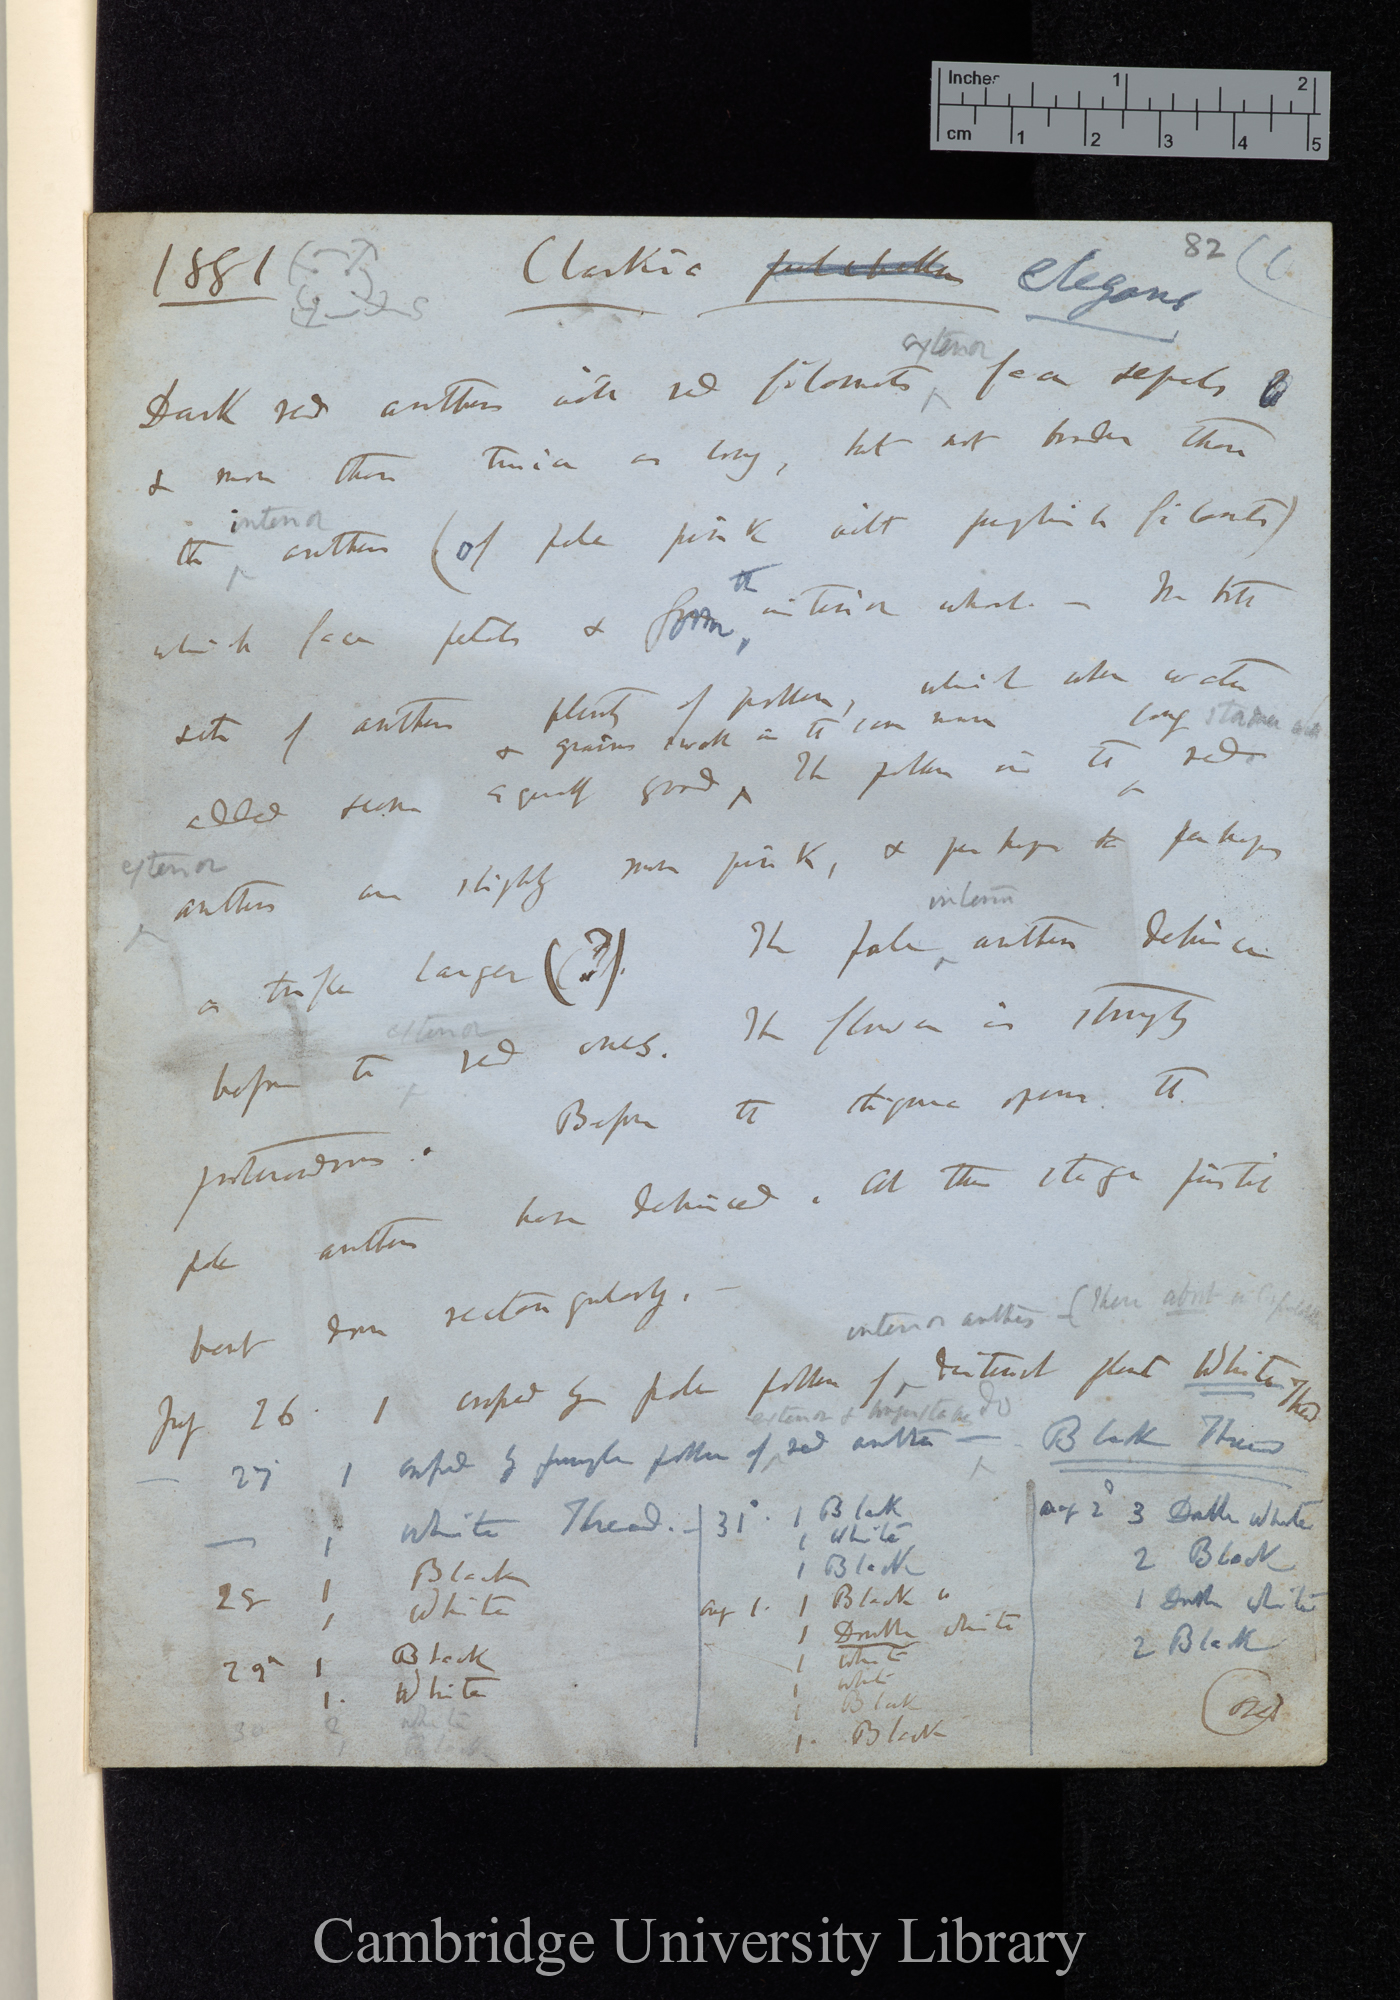 Inches 1 2
cm 1 2 3 4 5
82 (1
1881 Clarkia pulchella elegans
exterior
Dark red anthers with red filaments face sepals
& more than twice as long, but not broader than
interior
the anthers (of pale pink with purplish filaments)
the
which face petals & form interior whorl — In both
sets of anthers plenty of pollen, which when water
& grains swell in the same manner long stamens with
added seems equally good, The pollen in the red
exterior
anthers are slightly more pink, & perhaps the perhaps
interior
a trifle larger (?). The pale anthers dehisce
exterior
before the red ones. The flower is strongly
proterandrous. Before the stigma opens the
pale anthers have dehisced. At this stage pistil
bent down rectangularly. —
interior anthers — (These abort in C. pulchella
July 26. 1 crossed by pale pollen of distinct plant White Thread
exterior & do
— 27 1 crossed by purple pollen of red anthers — Black Thread
— 1 White Thread. —
28 1 Black
1 White
29 1 Black
1. White
30 2 White
1 Black
31. 1 Black
1 White
1 Black
Aug 1. 1 Black
1 Double white
1 White
1 White
1 Black
1. Black
Aug 2 3 Double White
2 Black
1 Double white
2 Black
(over)
Cambridge University Library